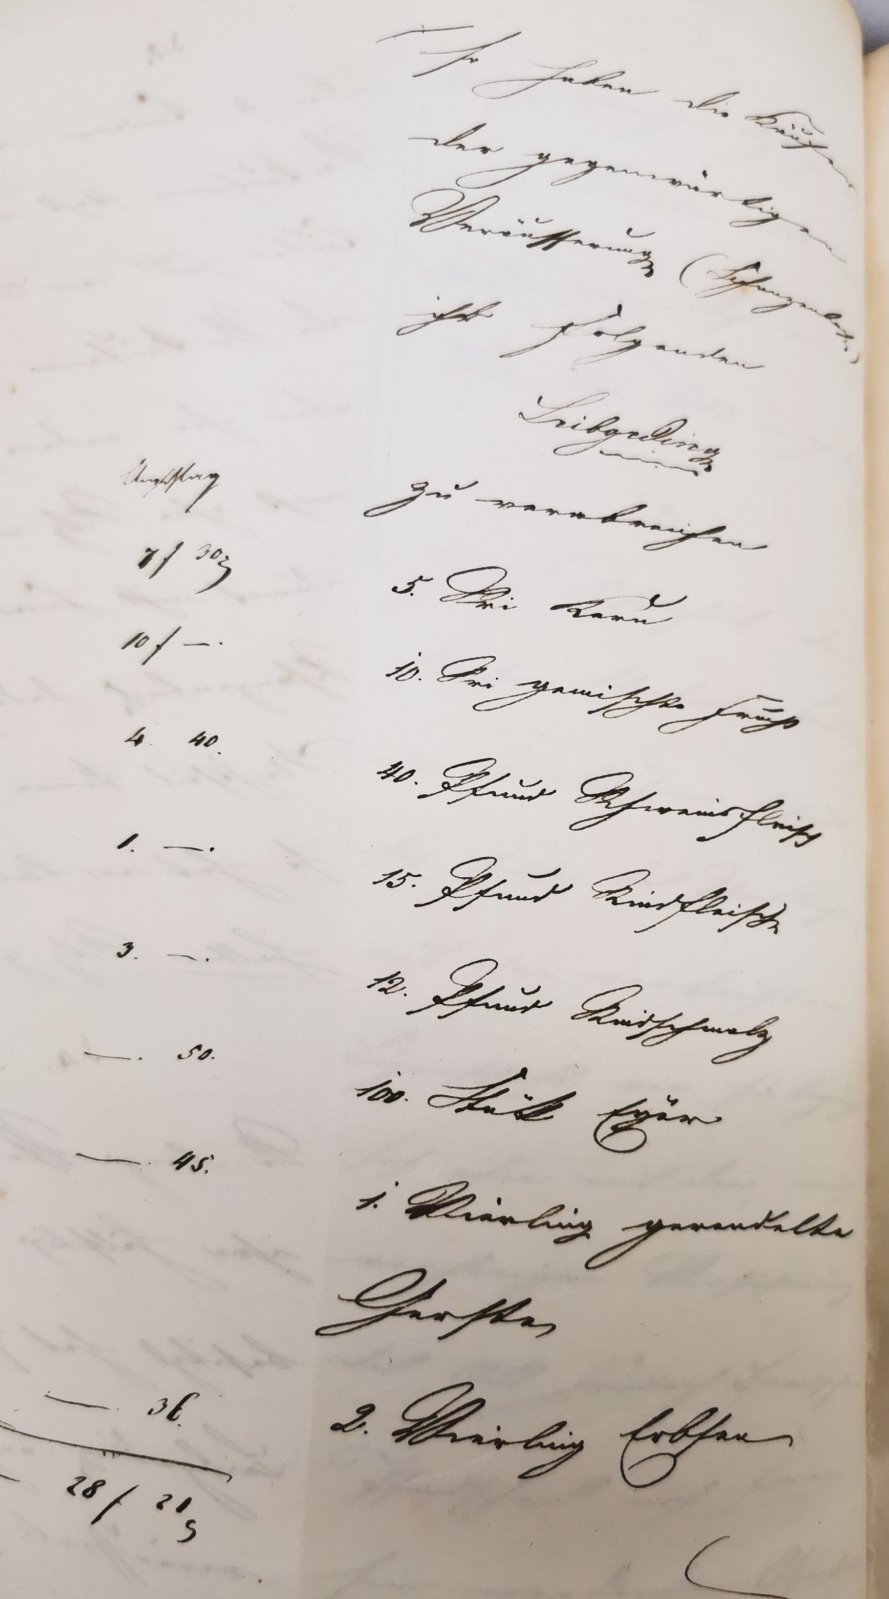 so haben die Käufer
der gegenwärtigen
Veräusserung
ihr folgenden
Leibgeding
zu verabreichen
Anschlag
7 f 30 x 5. Sri Kern
10 f —. 10. Sri gemischte Frucht
4. 40. 40. Pfund Schweinefleisch
1. —. 15. Pfund Rindfleisch
3. —. 12. Pfund Rindschmalz
—. 50. 100. Stük Eyer
—. 45. 1. Vierling gerendelte
Gersten
—. 36. 2. Vierling Erbsen
28 f 21 x